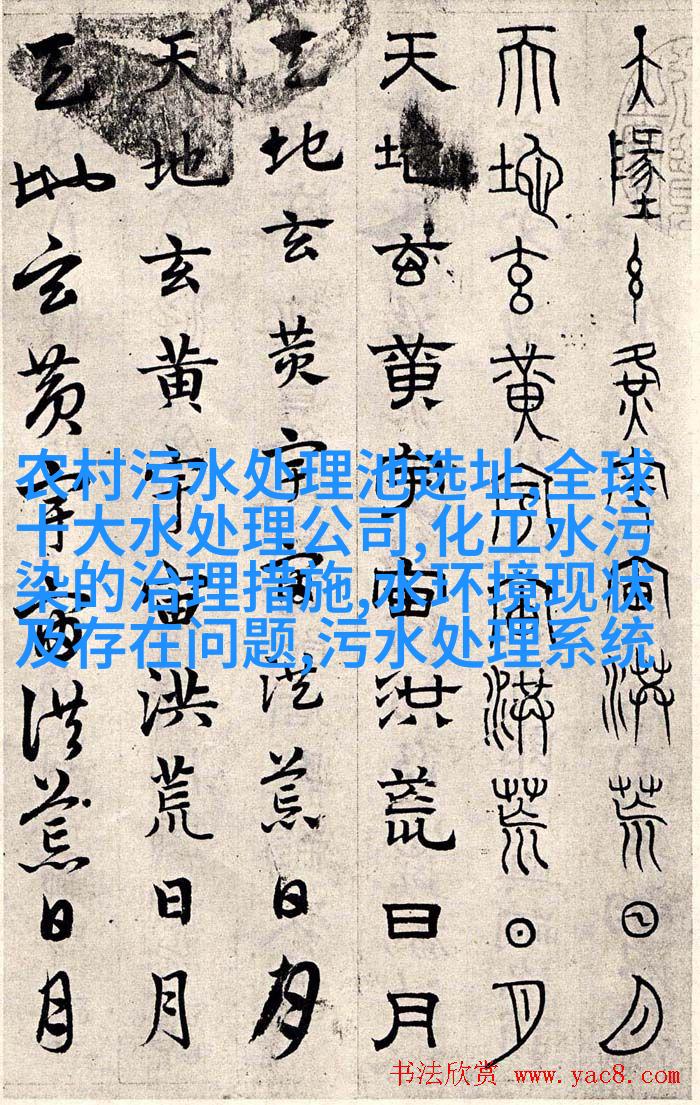 天地玄黄宇宙洪荒日月
天地玄黄宇宙洪荒日月
天地玄黄宇宙洪荒日月
天地玄黄宇宙洪荒日月
天地玄黄宇宙洪荒日月
天地玄黄宇宙洪荒日月
农村污水处理池选址,全球
十大水处理公司,化工水污
染的治理措施,水环境现状
及存在问题,污水处理系统
书法欣赏 www.yac8.com